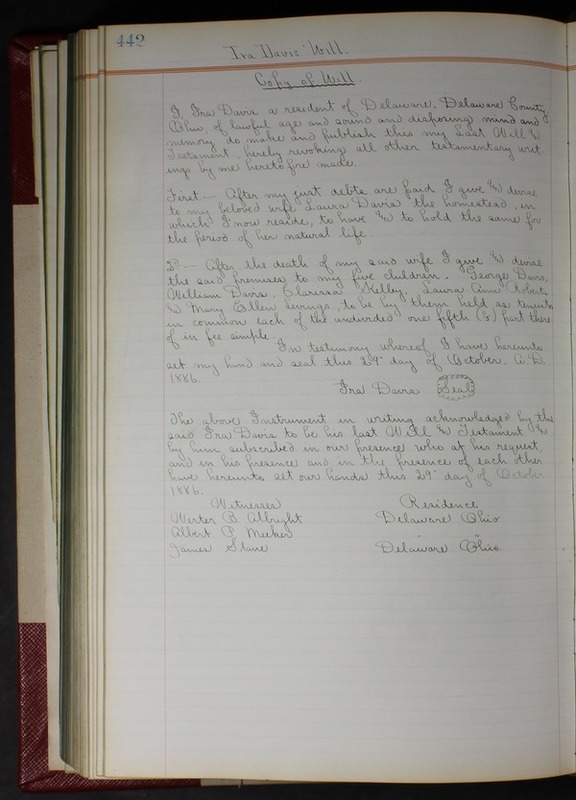 442
Ira Davis' Will.
Copy of Will.
I, Ira Davis a resident of Delaware, Delaware County
Ohio, of lawful age and sound and disposing mind and
memory do make and publish this my Last Will &
Testament, hereby revoking all other testamentary writ-
ings by me heretofore made.
First.— After my just debts are paid I give & devise
to my beloved wife Laura Davis the homestead, in
which I now reside, to have & to hold the same for
the period of her natural life.
2d— After the death of my said wife I give & devise
the said premises to my five children. George Davis,
William Davis, Clarissa Kelley, Laura Ann Roberts
& Mary Ellen, to be by them held as tenants
in common each of the undivided one fifth (1/5) part there-
of in fee simple.
In testimony whereof I have hereunto
set my hand and seal this 29" day of October A.D.
1886.
Ira Davis Seal
The above Instrument in writing acknowledged by the
said Ira Davis to be his last Will & Testament &
by him subscribed in our presence who at his request,
and in his presence and in the presence of each other
have hereunto set our hands this 29" day of October
1886.
Witnesses Residence
B. Albright Delaware Ohio
Albert P. Meeker " "
James Delaware Ohio.